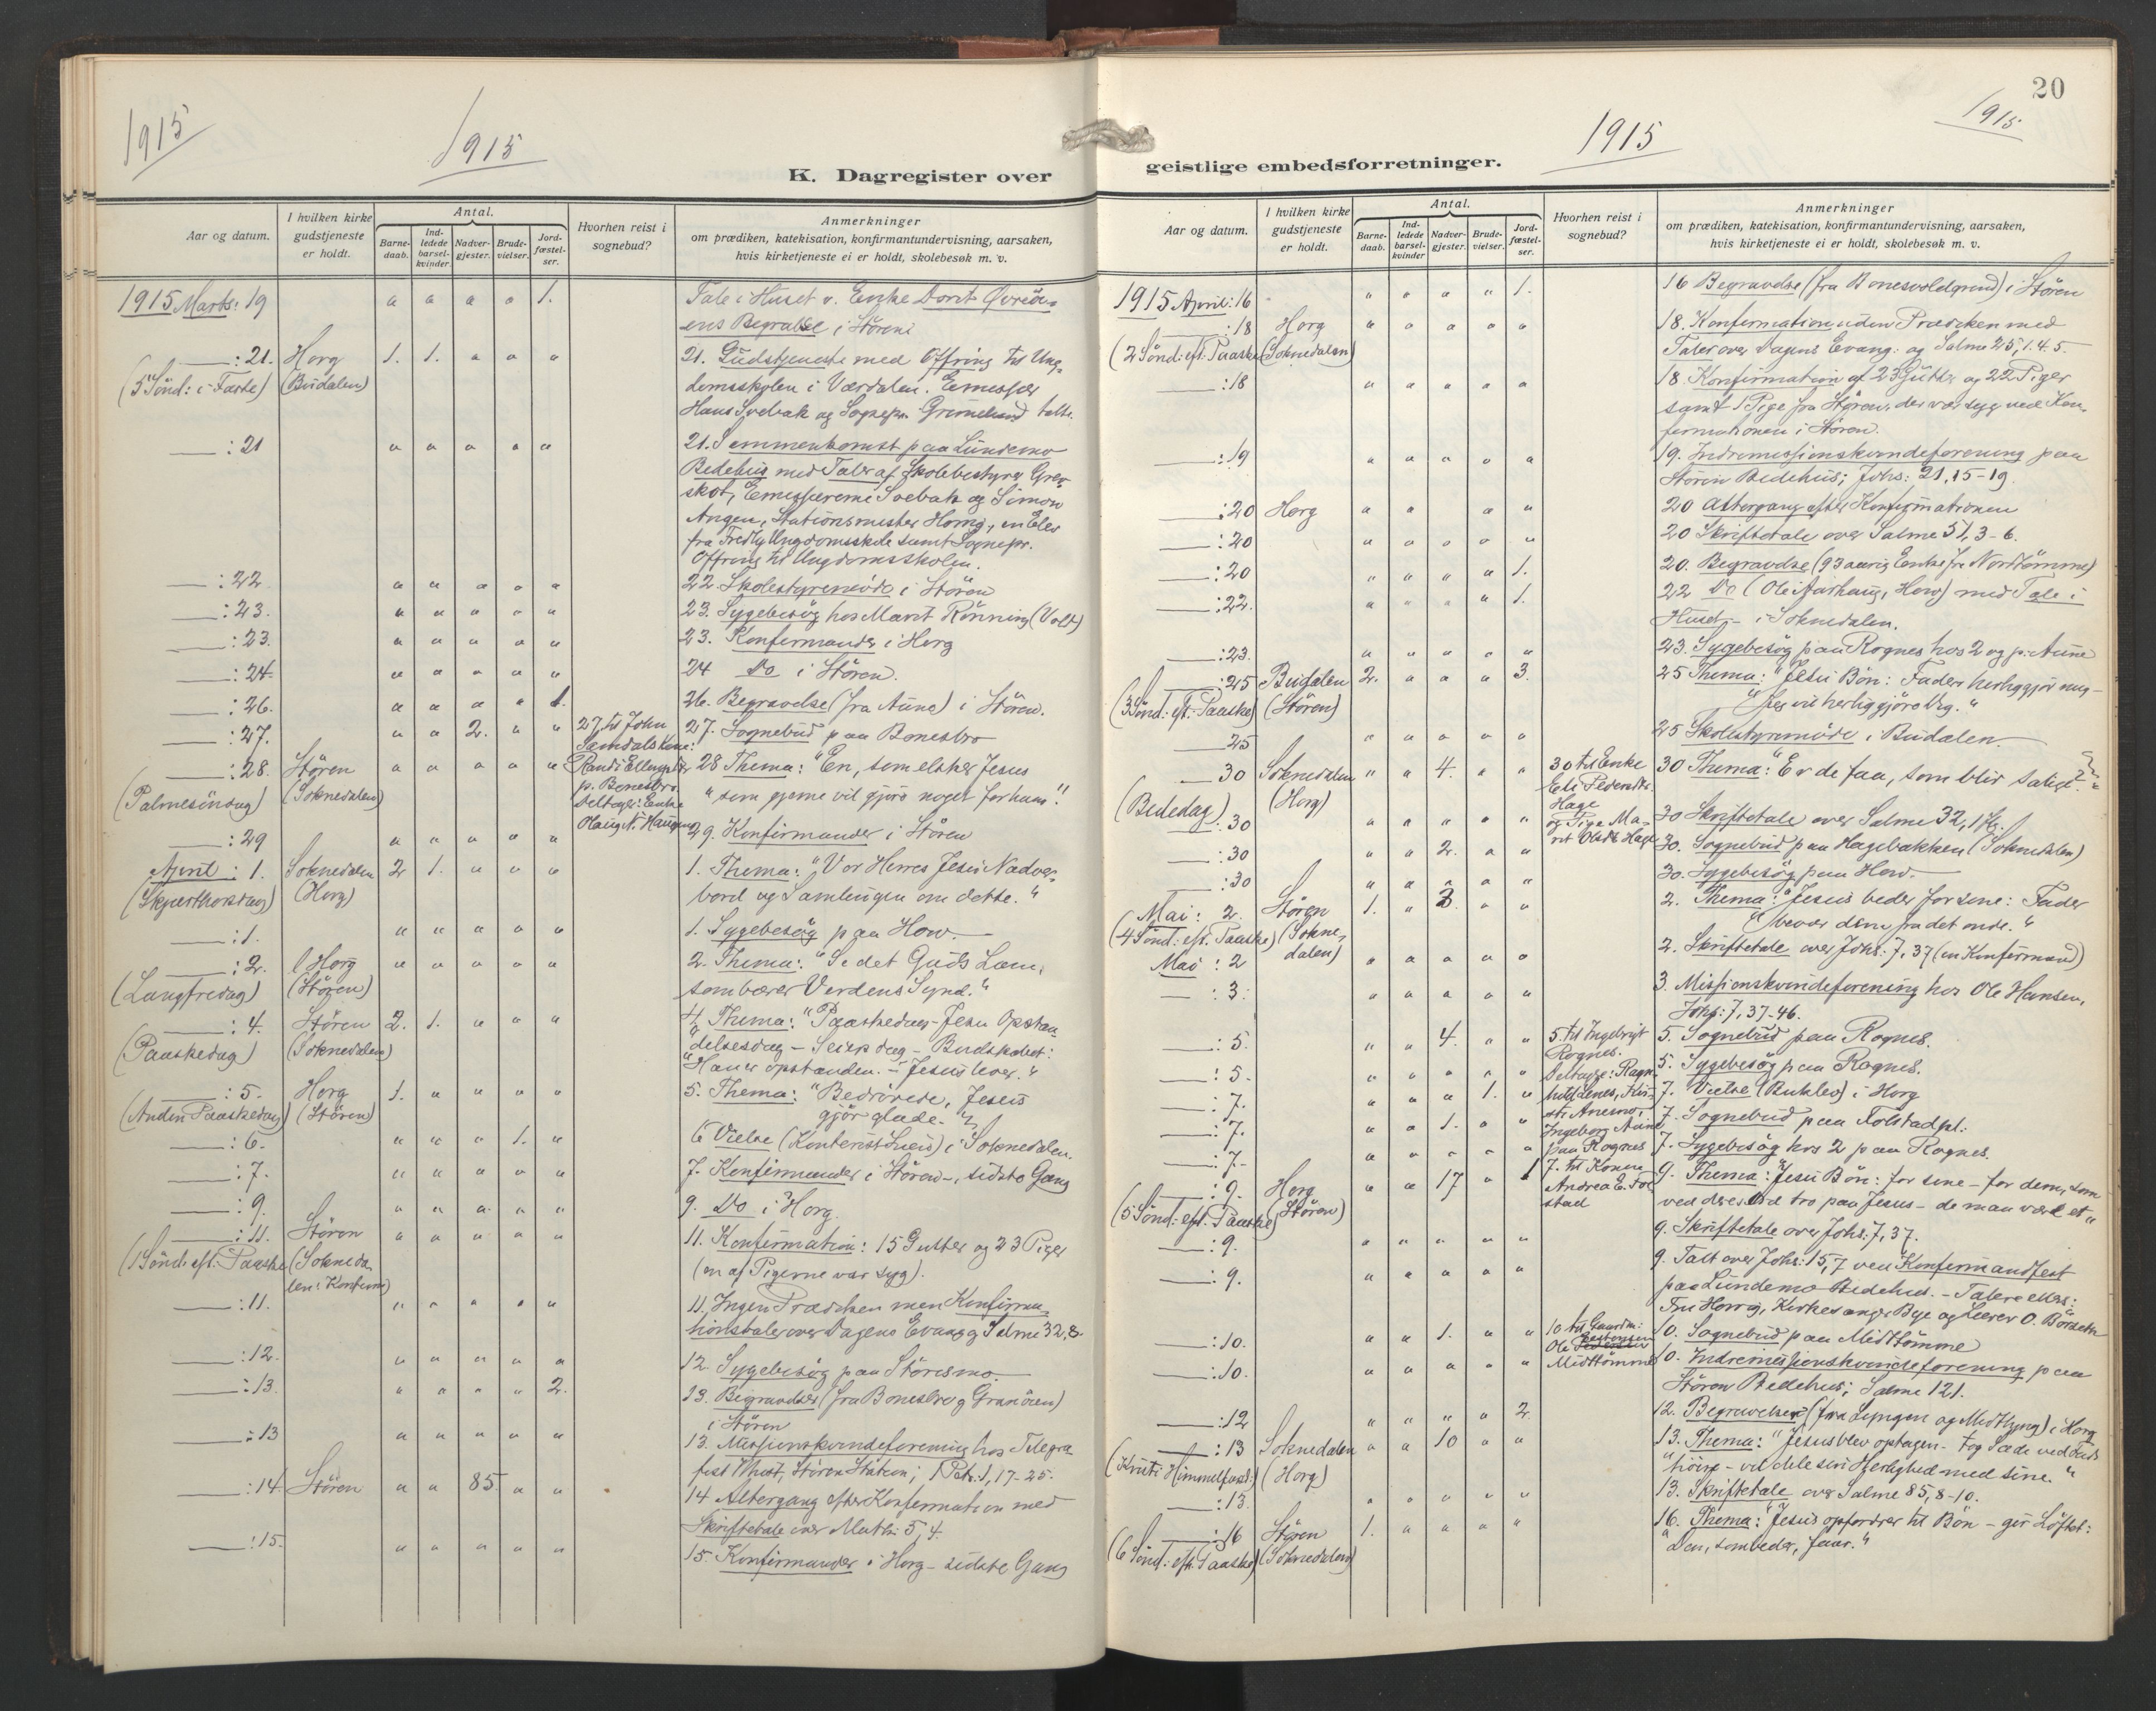 1915
1915
K. Dagregister over
Aar og datum.
I hvilken kirke gudstjeneste er holdt.
Antal.
Barne-daab.
Ind-ledede barsel-kvinder.
Nadver-gjester.
Brude-vielser.
Jord-fæstel-ser.
Hvorhen reist i sognebud?
Anmerkninger
om prædiken, katekisation, konfirmantundervisning, aarsaken,
hvis kirketjeneste ei er holdt, skolebesøk m. v.
1915 Marts: 19 " " " " 1. Tale i Huset v. Enke Dorit
i Støren
: 21. Horg 1. 1. " " " 21. Gudstjeneste med Offring til Ung-
(5 Sönd: i Faste) (Budalen) domsskolen i Værdalen. Emissær
Hans Svebak og Sognepr. Grimelund talte.
: 21 " " " " " 21. Sammenkomst paa Lundemo
Bedehus med Taler af Skolebestyrer
Emissærerne Svebak og Simon
Angen, Stationsmester en Elev
fra Fredly Ungdomsskole samt Sognepr.
Offring til Ungdomsskolen.
: 22 " " " " " 22. Skolestyremöde i Stören
: 23. " " " " " 23. Sygebesög hos Marit Rönning (Vold)
: 23. " " " " " 23. Konfirmander i Horg
: 24. " " " " " 24 Do i Stören.
: 26. " " " " 1. 26. Begravelse (fra Aune) i Stören.
: 27. " " 2. " " 27, til John 27. Sognebud paa Bonesbro
Samdals Kone:
: 28. Stören " " " " " Randi 28 Thema: "En, som elsker Jesus
(Palmesöndag) (Soknedalen) p. Bonesbro. "som gjerne vil gjöre noget for ham."
Deltager: Enke
Olaug N. Haugen
: 29 " " " " " 29. Konfirmander i Stören
April: 1. Soknedalen 2 1. " " " 1. Thema: "Vor Herres Jesu Nadver-
(Skjærthorsdag) (Horg) bord og Samlingen om dette."
: 1. " " " " " 1. Sygebesög paa How.
: 2. Horg " " " " " 2. Thema: "Se det Guds Lam,
(Langfredag) (Stören) som bærer Verdens Synd."
: 4. Stören 2. 1. " " " 4. Thema: "Paaskedag - Jesu Opstan-
(Paaskedag) (Soknedalen) delsesdag - Seiersdag - Budskabet:
"Han er opstanden. - Jesus lever."
: 5. Horg 1. " " " " 5. Thema: "Bedrövede, Jesus
(Anden Paaskedag) (Stören) gjör glade."
: 6. " " " 1. " 6 Vielse i Soknedalen.
: 7. " " " " " 7. Konfirmander i Stören -, sidste Gang
: 9. " " " " " 9. Do i Horg.
: 11. Stören " " " " " 11. Konfirmation: 15 Gutter og 23 Piger
(1 Sönd: eft: Paaske) (Sokneda- (en af Pigerne var syg).
len: Konfirm)
: 11. " " " " " 11. Ingen Prædiken men Konfirma-
tionstaler over Dagens Evang. og Salme 32,8.
: 12. " " " " " 12. Sygebesög paa Störesmo.
: 13. " " " " 2. 13. Begravelser (fra Bonesbro og Granöien)
i Stören
: 13 " " " " " 13. Missionskvindeforening hos Telegra-
fist Stören Station; 1 Petr. 1, 17-25.
: 14. Stören " " 85. " " 14 Altergang efter Konfirmation med
Skriftetale over Matth: 5, 4.
: 15. " " " " " 15. Konfirmander i Horg - sidste Gang
20
1915
1915
geistlige embedsforretninger.
Aar og datum.
I hvilken kirke gudstjeneste er holdt.
Antal.
Barne-daab.
Ind-ledede barsel-kvinder
Nadver-gjester.
Brude-vielser.
Jord-fæstel-ser.
Hvorhen reist i sognebud?
Anmerkninger
om prædiken, katekisation, konfirmantundervisning, aarsaken,
hvis kirketjeneste ei er holdt, skolebesøk m. v.
1915 April: 16 " " " " 1. 16 Begravelse (fra i Stören
: 18 Horg " " " " " 18. Konfirmation uden Prædiken med
(2 Sönd: eft: Paaske) (Soknedalen) Taler over Dagens Evang: og Salme 25, 1.4.5.
: 18 " " " " " 18. Konfirmation af 23 Gutter og 22 Piger
samt 1 Pige fra Stören, der var syg ved Kon-
firmationen i Stören.
: 19 " " " " " 19. Indremissionskvindeforening paa
Stören Bedehus; Johs: 21, 15-19.
: 20 Horg " " " " 20 Altergang efter Konfirmationen
: 20 " " " " " 20 Skriftetale over Salme 51, 3-6.
: 20 " " " " 1. 20. Begravelse (93 aarig Enke fra Nordtömme)
: 22. " " " " 1. 22 Do (Ole Aarhaug, How) med Tale i
Huset - i Soknedalen.
: 23. " " " " " 23. Sygebesög paa Rognes hos 2 og p. Aune
: 25 Budalen 2. " " " 3. 25 Thema: "Jesu Bön: Fader herliggjör mig -
(3 Sönd: eft: Paaske) (Stören) Jeg vil herliggjöre Dig."
25 " " " " " 25 Skolestyremöde i Budalen.
30 Soknedalen " " 4. " " 30 til Enke 30 Thema: "Er de faa, som blir salige?"
(Bededag) (Horg)
Hage
: 30 " " " " " og Pige Ma- 30 Skriftetale over Salme 32, 1
: 30 " " 2. " " rit Hage 30. Sognebud paa Hagebakken (Soknedalen)
: 30 " " " " " 30. Sygebesög paa How.
Mai: 2. Stören 1. " 3. " " 2. Thema: "Jesus beder for sine: Fader
(4 Sönd: eft: Paaske) (Sokne- bevar dem fra det onde."
dalen)
Mai: 2 " " " " " 2. Skriftetale over Johs: 7, 37 (en Konfirmand)
: 3. " " " " " 3. Missionskvindeforening hos Ole Hansen,
Johs: 7, 37-46.
: 5. " " 4. " " 5 til Ingebrigt 5. Sognebud paa Rognes.
Rognes.
: 5. " " " " " Deltagere: Ragn- 5. Sygebesög paa Rognes.
: 7. " " " 1. " 7. Vielse i Horg
: 7. " " 1. " " Ingeborg Aune 7. Sognebud paa Folstadpl:
: 7. " " " " " paa Rognes 7. Sygebesög hos 2 paa Rognes.
: 9. Horg " " 17 " 1 7. til Konen 9. Thema: "Jesu Bön: for sine - for dem, som
(5 Sönd: eft. Paaske) (Stören) Andrea E. Fol- ved deres Ord tro paa Jesus - de maa være et"
stad
: 9. " " " " " 9. Skriftetale over Johs: 7, 37.
: 9. " " " " " 9. Talt over Johs: 15, 7 ved Konfirmandfest
paa Lundemo Bedehus. - Talere ellers:
Fru Kirkesanger Bye og Lærer O. Börseth
: 10. " " 1. " " 10 til Gaardm: 10. Sognebud paa Midttömme
Ole
: 10. " " " " " Midttömme 10. Indremissionskvindeforening paa
Stören Bedehus; Salme 121.
: 12 " " " " 2. 12. Begravelser (fra Lyngen og Midtlyng) i Horg
: 13 Soknedalen " " 10 " " 13. Thema: "Jesus blev optagen - tog Sæde ved Guds
(Kristi Himmelfart:) (Horg) höire - vil dele sin Herlighed med sine."
: 13. " " " " " 13. Skriftetale over Salme 85, 8-10.
: 16 Stören 1. " " " " 16. Thema: "Jesus opfordrer til Bön - gir Löftet:
(6 Sönd: eft. Paaske) (Soknedalen) "Den, som beder, faar."